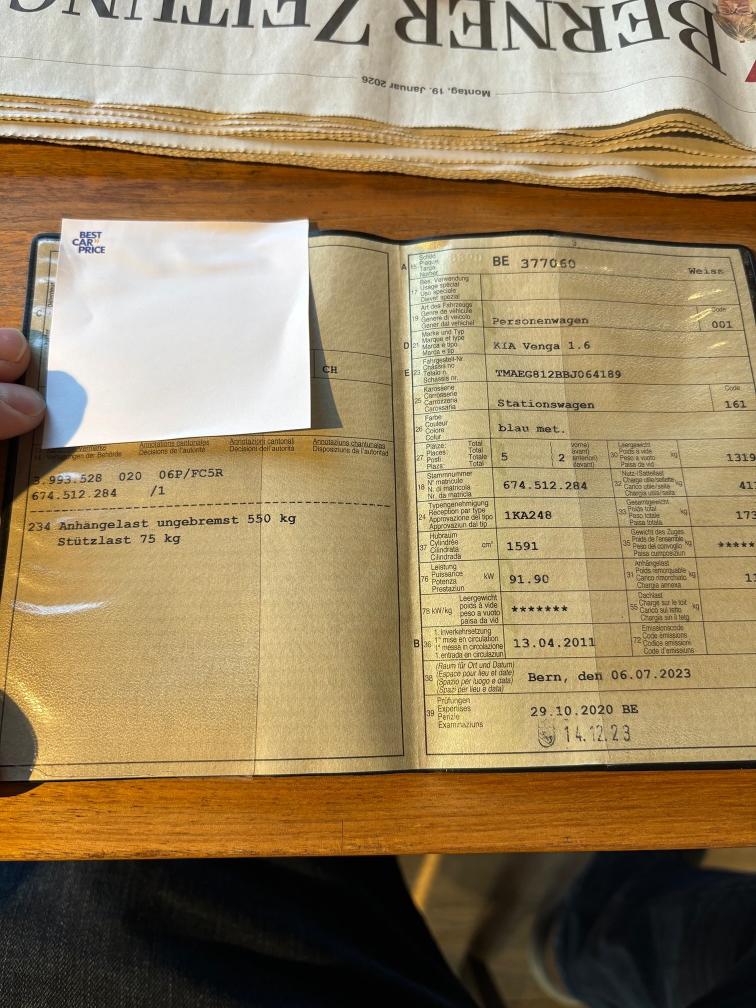 BERNER ZEITUNG
Montag, 19. Januar 2026
BEST
CAR
PRICE
CH
Annotazioni cantonali
Decisioni dell'autorità
3.993.528 020 06P/FC5R
674.512.284 /1
234 Anhängelast ungebremst 550 kg
Stützlast 75 kg
A 15 Schild
Plaque
Targa
Numer
BE 377060
Weiss
17 Bes. Verwendung
Usage spécial
Uso speciale
Diever spezial
19 Art des Fahrzeugs
Genre de véhicule
Genere di veicolo
Gener dal vehichel
Personenwagen
Code
001
D 21 Marke und Typ
Marque et type
Marca e tipo
Marca e tip
KIA Venga 1.6
E 23 Fahrgestell-Nr.
Châssis no
Telaio n.
Schassis nr.
TMAEG812BBJ064189
25 Karosserie
Carrosserie
Carrozzeria
Carossaria
Stationswagen
Code
161
26 Farbe
Couleur
Colore
Colur
blau met.
27 Plätze: Total
Places: Total
Posti: Totale
Plazs: Total
5
2
vorne)
avant)
anteriori)
davant)
30 Leergewicht
Poids à vide
Peso a vuoto
Paisa da vid
kg
1319
18 Stammnummer
N° matricule
N. di matricola
Nr. da matricla
674.512.284
32 Nutz-/Sattellast
Charge utile/sellette
Carico utile/sella
Chargia utila/sella
kg
24 Typengenehmigung
Réception par type
Approvazione del tipo
Approvaziun dal tip
1KA248
33 Gesamtgewicht
Poids total
Peso totale
Paisa totala
kg
173
37 Hubraum
Cylindrée
Cilindrata
Cilindrada
cm³
1591
35 Gewicht des Zuges
Poids de l'ensemble
Peso del convoglio
Paisa cumposiziun
kg
*****
76 Leistung
Puissance
Potenza
Prestaziun
kW
91.90
31 Anhängelast
Poids remorquable
Carico rimorchiato
Chargia annexa
kg
78 kW/kg
Leergewicht
poids à vide
peso a vuoto
paisa da vid
*******
55 Dachlast
Charge sur le toit
Carico sul tetto
Chargia sin il tetg
kg
B 36 1. Inverkehrsetzung
1re mise en circulation
1a messa in circolazione
1. entrada en circulaziun
13.04.2011
72 Emissionscode
Code émissions
Codice emissioni
Code d'emissiuns
38 (Raum für Ort und Datum)
(Espace pour lieu et date)
(Spazio per luogo e data)
(Spazi per lieu e data)
Bern, den 06.07.2023
39 Prüfungen
Expertises
Perizie
Examinaziuns
29.10.2020 BE
14.12.23